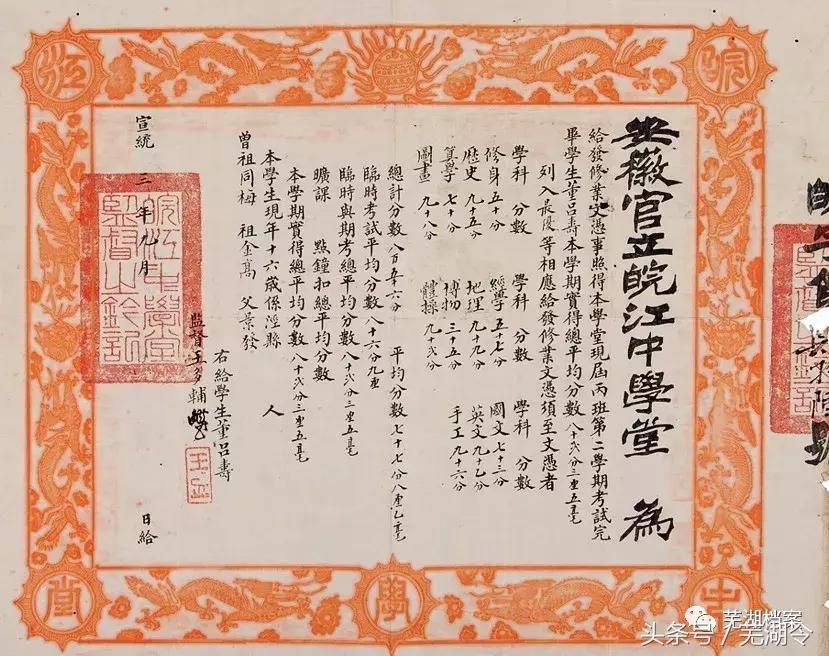 皖江中學堂
安徽官立皖江中學堂 為
給發修業文憑事照得本學堂現屆丙班第二學期考試完
畢學生董呂壽本學期實得總平均分數八十弍分三厘五毫
列入最優等相應給發修業文憑須至文憑者
學科 分數 學科 分數 學科 分數
修身五十分 經學五十七分 國文七十三分
歷史九十五分 地理九十九分 英文九十乙分
算學七十分 博物三十五分 手工九十六分
圖畫九十八分 體操九十弍分
總計分數八百五十六分 平均分數七十七分八厘乙毫
臨時考試平均分數八十六分九厘
臨時與期考總平均分數八十弍分三厘五毫
曠課 點鐘扣總平均分數
本學期實得總平均分數八十弍分三厘五毫
本學生現年十六歲係涇縣 人
曾祖同梅 祖金萬 父景發
右給學生董呂壽
監督王多輔
宣統三年九月 日給
皖江中學堂
監督之鈐記
芜湖档案
头条号/芜湖令